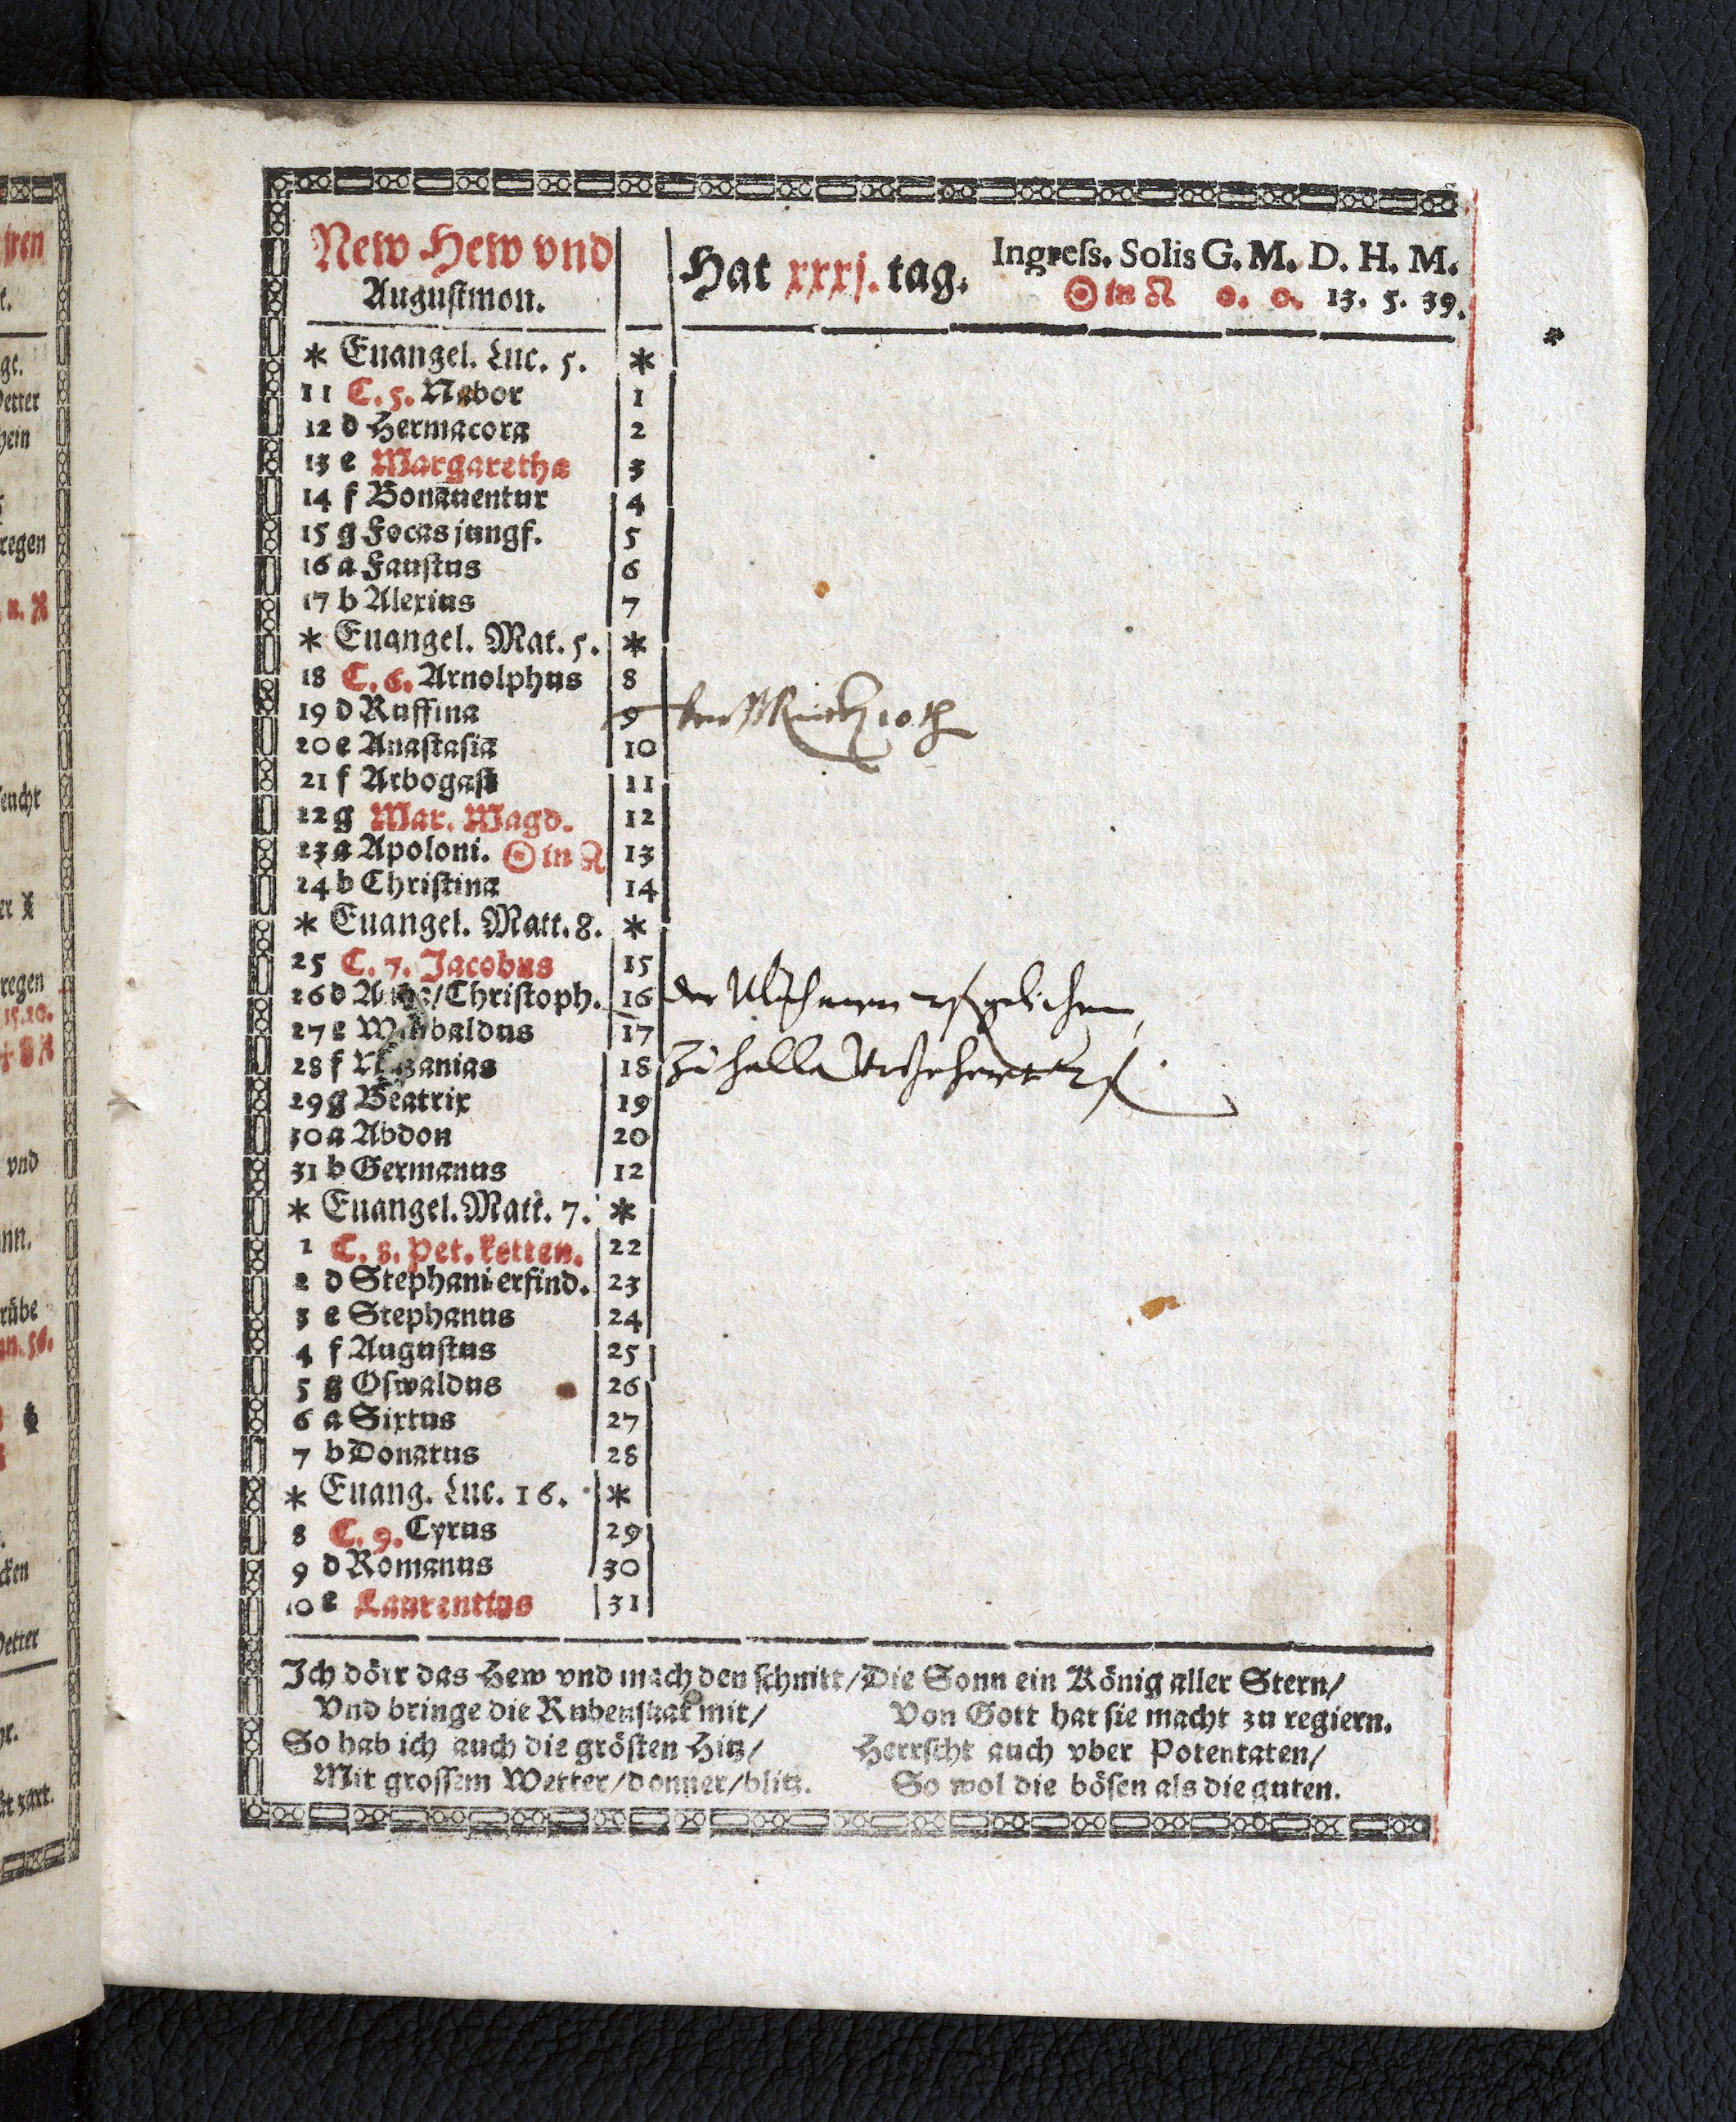 New Hew vnd
Augustmon.
Hat xxxj. tag.
Ingreſs. Solis G. M. D. H. M.
☉ in ♌ 0. 0. 13. 5. 39.
* Euangel. Luc. 5. *
11 C. 5. Nabor 1
12 d Hermacora 2
13 e Margaretha 3
14 f Bonauentur 4
15 g Focas jungf. 5
16 a Fauſtus 6
17 b Alexius 7
* Euangel. Mat. 5. *
18 C. 6. Arnolphus 8
19 d Ruffina 9
20 e Anaſtaſia 10
21 f Arbogaſt 11
22 g Mar. Magd. 12
23 a Apoloni. ☉ in ♌ 13
24 b Chriſtina 14
* Euangel. Matt. 8. *
25 C. 7. Jacobus 15
26 d /Chriſtoph. 16 der
27 e 17
28 f 18 Zu halla
29 g Beatrix 19
30 a Abdon 20
31 b Germanus 12
* Euangel. Matt. 7. *
1 C. 8. Pet. ketten. 22
2 d Stephani erfind. 23
3 e Stephanus 24
4 f Auguſtus 25
5 g Oſwaldus 26
6 a Sixtus 27
7 b Donatus 28
* Euang. Luc. 16. *
8 C. 9. Cyrus 29
9 d Romanus 30
10 e Laurentius 31
Ich dörr das Hew vnd mach den ſchnitt/
Vnd bringe die mit/
So hab ich auch die gröſten Hitz/
Mit groſſem Wetter/donner/blitz.
Die Sonn ein König aller Stern/
Von Gott hat ſie macht zu regiern.
Herrſcht auch vber Potentaten/
So wol die böſen als die guten.